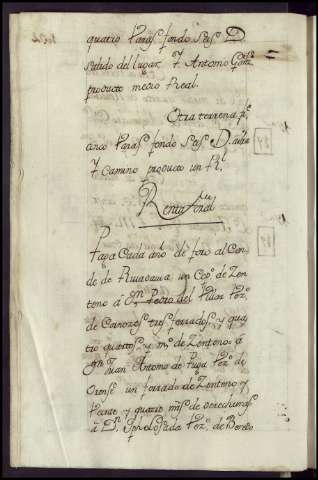 quatro Varas fondo seis D
sestido del lugar, Y Antonio Gonz
producto medio Real.
Otra terrena fte
cinco Varas fondo seis D.
Y Camino producto un Rl,
Renta frual
Paga Cada año de foro al Con
de de Rivadavia un Copo de Zen
teno á Dn Pedro del Villar Vezo
de Canozes tres ferrados, y qua
tro quartos y mo de Zenteno: á
Dn Juan Antonio de Puga Vezo de
Orense un ferrado de Zenteno y
Veinte y quatro mrs de derechuras
á Dn Losada Vezo de